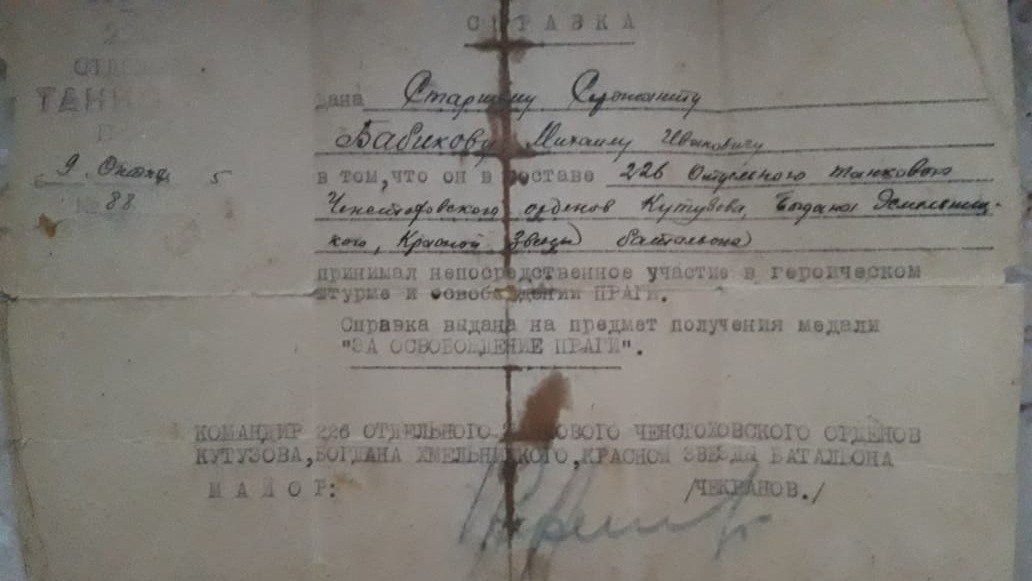 СПРАВКА
ТАНК
Дана Старшему Сержанту
9 Октяб 5
Бабикову Михаилу Ивановичу
№ 88
в том, что он в составе 226 Отдельного танкового
Ченстоховского орденов Кутузова, Богдана Хмельниц-
кого, Красной Звезды батальона
принимал непосредственное участие в героическом
штурме и освобождении ПРАГИ.
Справка выдана на предмет получения медали
"ЗА ОСВОБОЖДЕНИЕ ПРАГИ".
КОМАНДИР 226 ОТДЕЛЬНОГО ТАНКОВОГО ЧЕНСТОХОВСКОГО ОРДЕНОВ
КУТУЗОВА, БОГДАНА ХМЕЛЬНИЦКОГО, КРАСНОЙ ЗВЕЗДЫ БАТАЛЬОНА
МАЙОР: /ЧЕКРАНОВ./